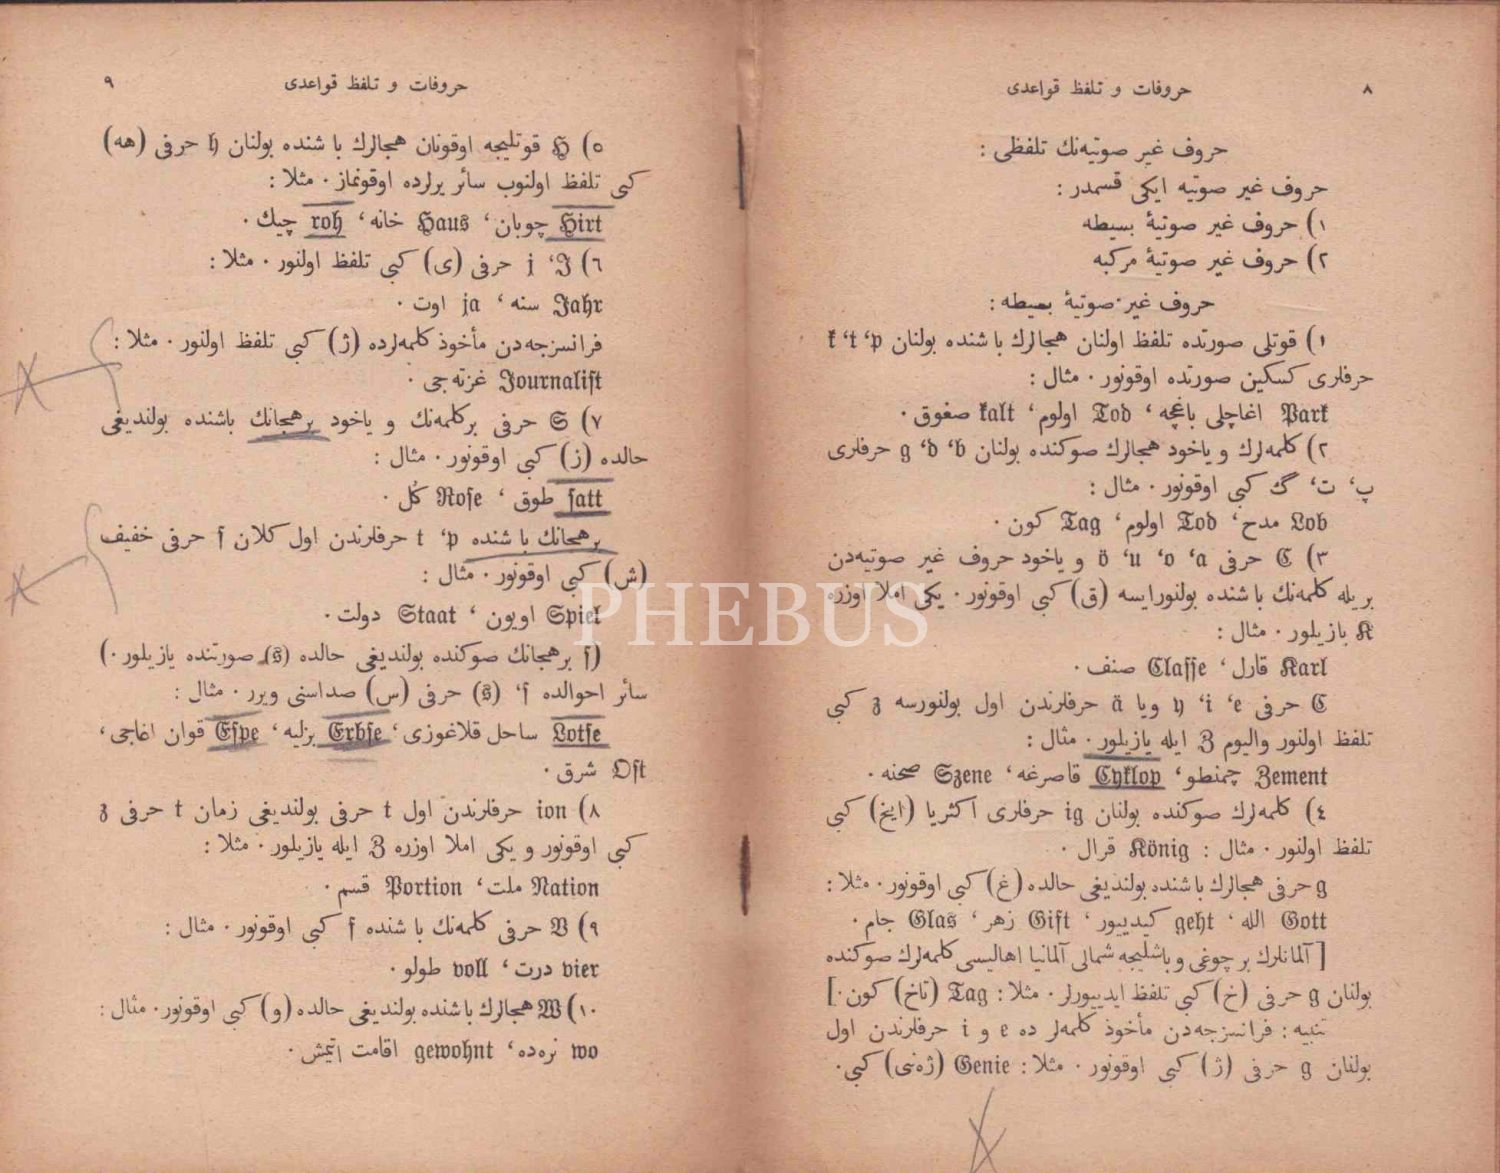 ٨ حروفات و تلفظ قواعدی
حروف غیر صوتیه‌نك تلفظی :
حروف غیر صوتیه ایکی قسمدر :
١) حروف غیر صوتیهٔ بسیطه
٢) حروف غیر صوتیهٔ مرکبه
حروف غیر صوتیهٔ بسیطه :
١) قوتلی صورتده تلفظ اولنان هجالرك باشنده بولنان k ‘t ‘p
حرفلری کسکین صورتده اوقونور . مثال :
Park اغاچلی باغچه ‘ Tod اولوم ‘ kalt صغوق .
٢) کلمه‌لرك و یاخود هجالرك صوکنده بولنان g ‘d ‘b حرفلری
پ‘ ت‘ گ کبی اوقونور . مثال :
Lob مدح ‘ Tod اولوم ‘ Tag کون .
٣) C حرفی ö ‘u ‘o ‘a و یاخود حروف غیر صوتیه‌دن
بریله کلمه‌نك باشنده بولنورایسه (ق) کبی اوقونور . یکی املا اوزره
K یازیلور . مثال :
Karl قارل ‘ Classe صنف .
C حرفی y ‘i ‘e ویا ä حرفلرندن اول بولنورسه z کبی
تلفظ اولنور والیوم Z ایله یازیلور . مثال :
Zement چمنطو ‘ Cyklop قاصرغه ‘ Szene صحنه .
٤) کلمه‌لرك صوکنده بولنان ig حرفلری اکثریا (ایخ) کبی
تلفظ اولنور . مثال : König قرال .
g حرفی هجالرك باشنده بولندیغی حالده (غ) کبی اوقونور . مثلا :
Gott الله ‘ geht کیدییور ‘ Gift زهر ‘ Glas جام .
[ آلمانلرك بر چوغی و باشلیجه شمالی آلمانیا اهالیسی کلمه‌لرك صوکنده
بولنان g حرفی (خ) کبی تلفظ ایدییورلر . مثلا : Tag (تاخ) کون .]
تنبیه : فرانسزجه‌دن مأخوذ کلمه‌لر ده e و i حرفلرندن اول
بولنان g حرفی (ژ) کبی اوقونور . مثلا : Genie (ژه‌نی) کبی .
حروفات و تلفظ قواعدی ٩
٥) H قوتلیجه اوقونان هجالرك باشنده بولنان h حرفی (هه)
کبی تلفظ اولنوب سائر یرلرده اوقونماز . مثلا :
Hirt چوبان ‘ Haus خانه ‘ roh چیك .
٦) j ‘J حرفی (ی) کبی تلفظ اولنور . مثلا :
Jahr سنه ‘ ja اوت .
فرانسزجه‌دن مأخوذ کلمه‌لرده (ژ) کبی تلفظ اولنور . مثلا :
Journalist غزته‌جی .
٧) S حرفی برکلمه‌نك و یاخود برهجانك باشنده بولندیغی
حالده (ز) کبی اوقونور . مثال :
satt طوق ‘ Rose گل .
برهجانك باشنده t ‘p حرفلرندن اول کلان s حرفی خفیف
(ش) کبی اوقونور . مثال :
Spiel اویون ‘ Staat دولت .
(s برهجانك صوکنده بولندیغی حالده (s) صورتنده یازیلور .)
سائر احوالده s ‘ (s) حرفی (س) صداسنی ویرر . مثال :
Lotse ساحل قلاغوزی ‘ Erbse بزلیه ‘ Espe قوان اغاجی ‘
Ost شرق .
٨) ion حرفلرندن اول t حرفی بولندیغی زمان t حرفی z
کبی اوقونور و یکی املا اوزره Z ایله یازیلور . مثلا :
Nation ملت ‘ Portion قسم .
٩) V حرفی کلمه‌نك باشنده f کبی اوقونور . مثال :
vier درت ‘ voll طولو .
١٠) W هجالرك باشنده بولندیغی حالده (و) کبی اوقونور . مثال :
wo نره‌ده ‘ gewohnt اقامت اتیمش .
PHEBUS